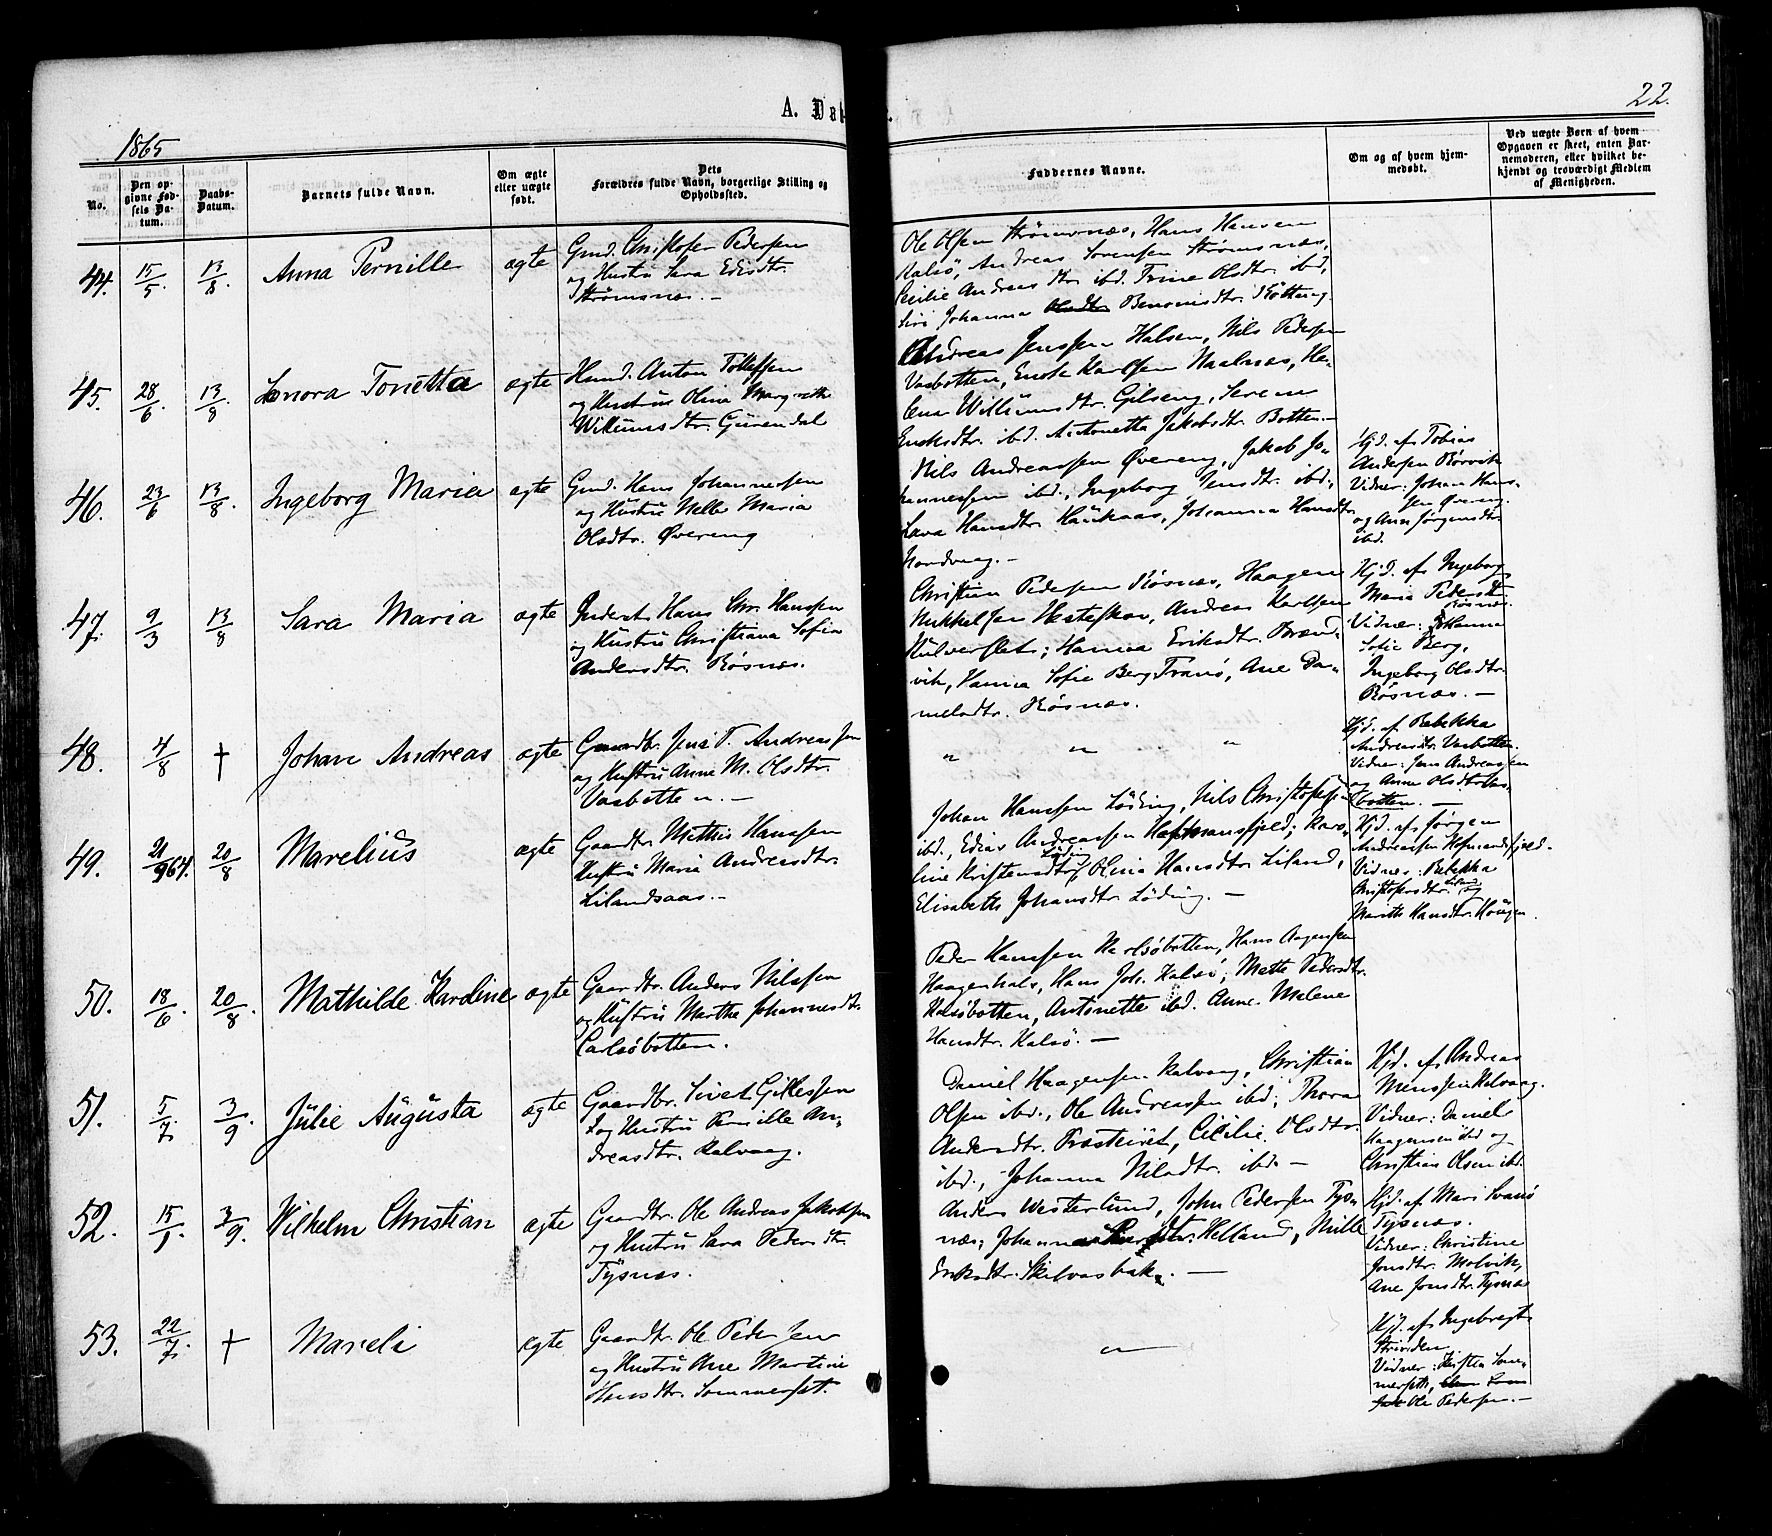 A. Dø
22.
1865
No.
Den op-
givne Fød-
sels Da-
tum.
Daabs-
Datum.
Barnets fulde Navn.
Om ægte
eller uægte
født.
Dets
Forældres fulde Navn, borgerlige Stilling og
Opholdssted.
Faddernes Navne.
Om og af hvem hjem-
medøbt.
Ved uægte Børn af hvem
Opgaven er skeet, enten Bar-
nemoderen, eller hvilket be-
kjendt og troværdigt Medlem
af Menigheden.
44. 15/5 13/8. Anna Pernille ægte
Gmd. Christofer Pedersen
og Hustru Sara Edisdtr.
Strömsnæs. -
Ole Olsen Strömsnæs, Hans Hansen
Kalsö, Andreas Sørensen Strømsnæs,
Cecilie Andreasdtr ibd. Trine Olsdtr. ibd,
Siri Johanna Benonisdtr.
45. 28/6. 13/8 Lenora Tonetta ægte
Hmd. Anton Tollefsen
og Hustru Olina Margrethe
Willumsdtr. Gürendal
Andreas Jenssen Halsen, Nils Pedersen
Vasbotten, Enok Karlsen Naalnæs, He-
lena Willumsdtr. Gilseng, Seren
Enoksdtr. ibd. Antonetta Jakobsdtr. Botten. -
46. 23/6 13/8. Ingeborg Maria ægte
Gmd. Hans Johannessen
og Hustru Nelle Maria
Olsdtr. Øvereng
Nils Andreassen Øvereng, Jakob Jo-
hannessen ibd., Ingeborg Jensdtr. ibd.,
Lava Hansdtr. Haukaas, Johanna Hansdtr
Nordvaag. -
Hjd. af Tobias
Andersen Rörvik
Vidner: Johan Hans-
sen Øvereng
og Ane Jørgensdtr.
ibd.
47. 9/3 13/8 Sara Maria ægte
Inderst Hans Chr. Hanssen
og Hustru Christiana Sofia
Andersdtr. Rösnæs.
Christian Pedersen Rösnæs, Haagen
Mikkelsen Hesteskov, Andreas Karlsen
Hanna Eriksdtr. Brænd-
vik, Hanna Sofie Berg Tranö, Ane Da-
nielsdtr. Rösnæs.
Hjd. af Ingeborg
Maria Pedersdtr
Rösnæs.
Vidner: Johanna
Sofie Berg,
Ingeborg Olsdtr.
Rösnæs. -
48. 4/8 † Johan Andreas ægte
Gaardbr. Jens P. Andreassen
og Hustru Anne M. Olsdtr.
Vasbotten. -
" " "
Hjd. af Rebekka
Andreasdtr. Vasbotten.
Vidner: Jens Andreassen
og Anne Olsdtr Vas-
botten. -
49. 21/9 64. 20/8 Marelius ægte
Gaardbr. Mathis Hanssen
Hustru Maria Andreasdtr.
Lilandsaas. -
Johan Hanssen Löding, Nils Christofersen
ibd., Edias Andreassen Hofmansfjeld; Karo-
line Kristensdtr Löding, Olina Hansdtr. Liland,
Elisabeth Johansdtr. Löding. -
Hjd. af Jørgen
Andreassen Hofmandsfjeld.
Vidner: Rebekka
Christofersdtr. Liland og
Marith Hansdtr. Hougen.
50. 18/6. 20/8. Mathilde Karoline ægte
Gaardbr. Anders Nilssen
og Hustru Marthe Johannesdtr.
Carlsöbotten.
Peder Hanssen Karlsöbotten, Hans Aagensen
Haagenhals, Hans Joh. Kalsö, Mette Pedersdtr.
Kalsöbotten, Antonette ibd. Anne Malene
Hansdtr. Kalsö. -
51. 5/7. 3/9. Julie Augusta ægte
Gaardbr. Sivert Gillessen
og Hustru Pernille An-
dreasdtr. Kalvaag.
Daniel Haagensen Kalvaag, Christian
Olsen ibd., Ole Andreassen ibd; Thora
Andersdtr. Præsteiret, Cecilie Olsdtr.
ibd., Johanna Nilsdtr. ibd. -
Hjd. af Andreas
Monssen Kalvaag.
Vidner: Daniel
Haagensen ibd og
Christian Olsen ibd.
52. 15/1 3/9. Vilhelm Christian ægte
Gaardbr. Ole Andreas Jakobsen
og Hustru Sara Pedersdtr.
Tysnæs.
Anders Westerlund, John Pedersen Tys-
næs; Johanna Helland, Mille
Eriksdtr. Skilvasbak. -
Hjd. af Mari Svanö
Tysnæs.
Vidner: Christine
Jonsdtr. Molvik,
Ane Jonsdtr. Tysnæs
53. 22/7. † Mareli ægte
Gaardbr. Ole Pedersen
og Hustru Ane Martine
Hansdtr. Sommerset.
"
Hjd. af Ingebregt
Vidner: Kirsten Som-
merseth,
Ole Pedersen. -